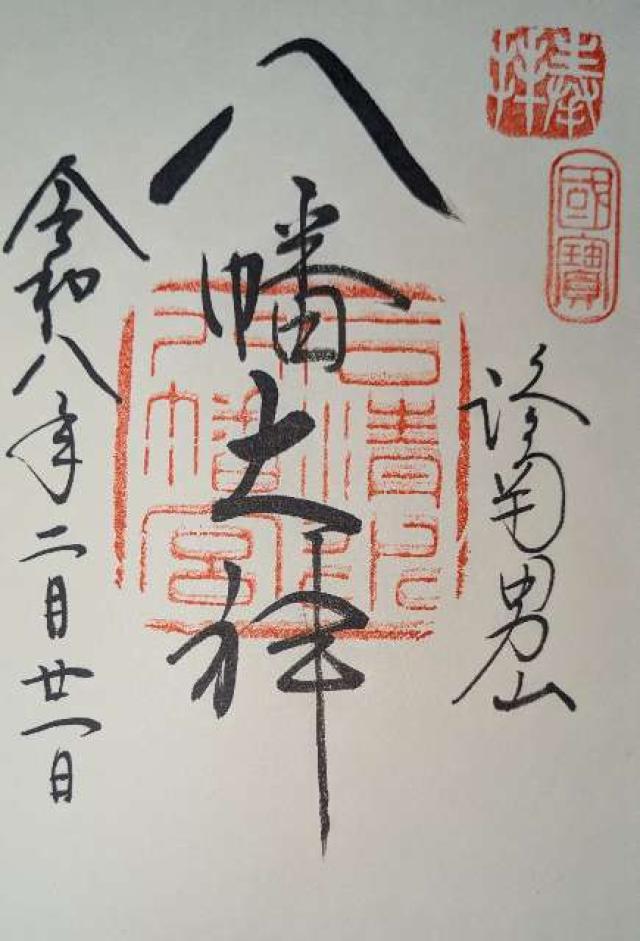 奉拝
國寶
洛南男山
八幡大神
石清水
八幡宮
令和八年二月廿一日